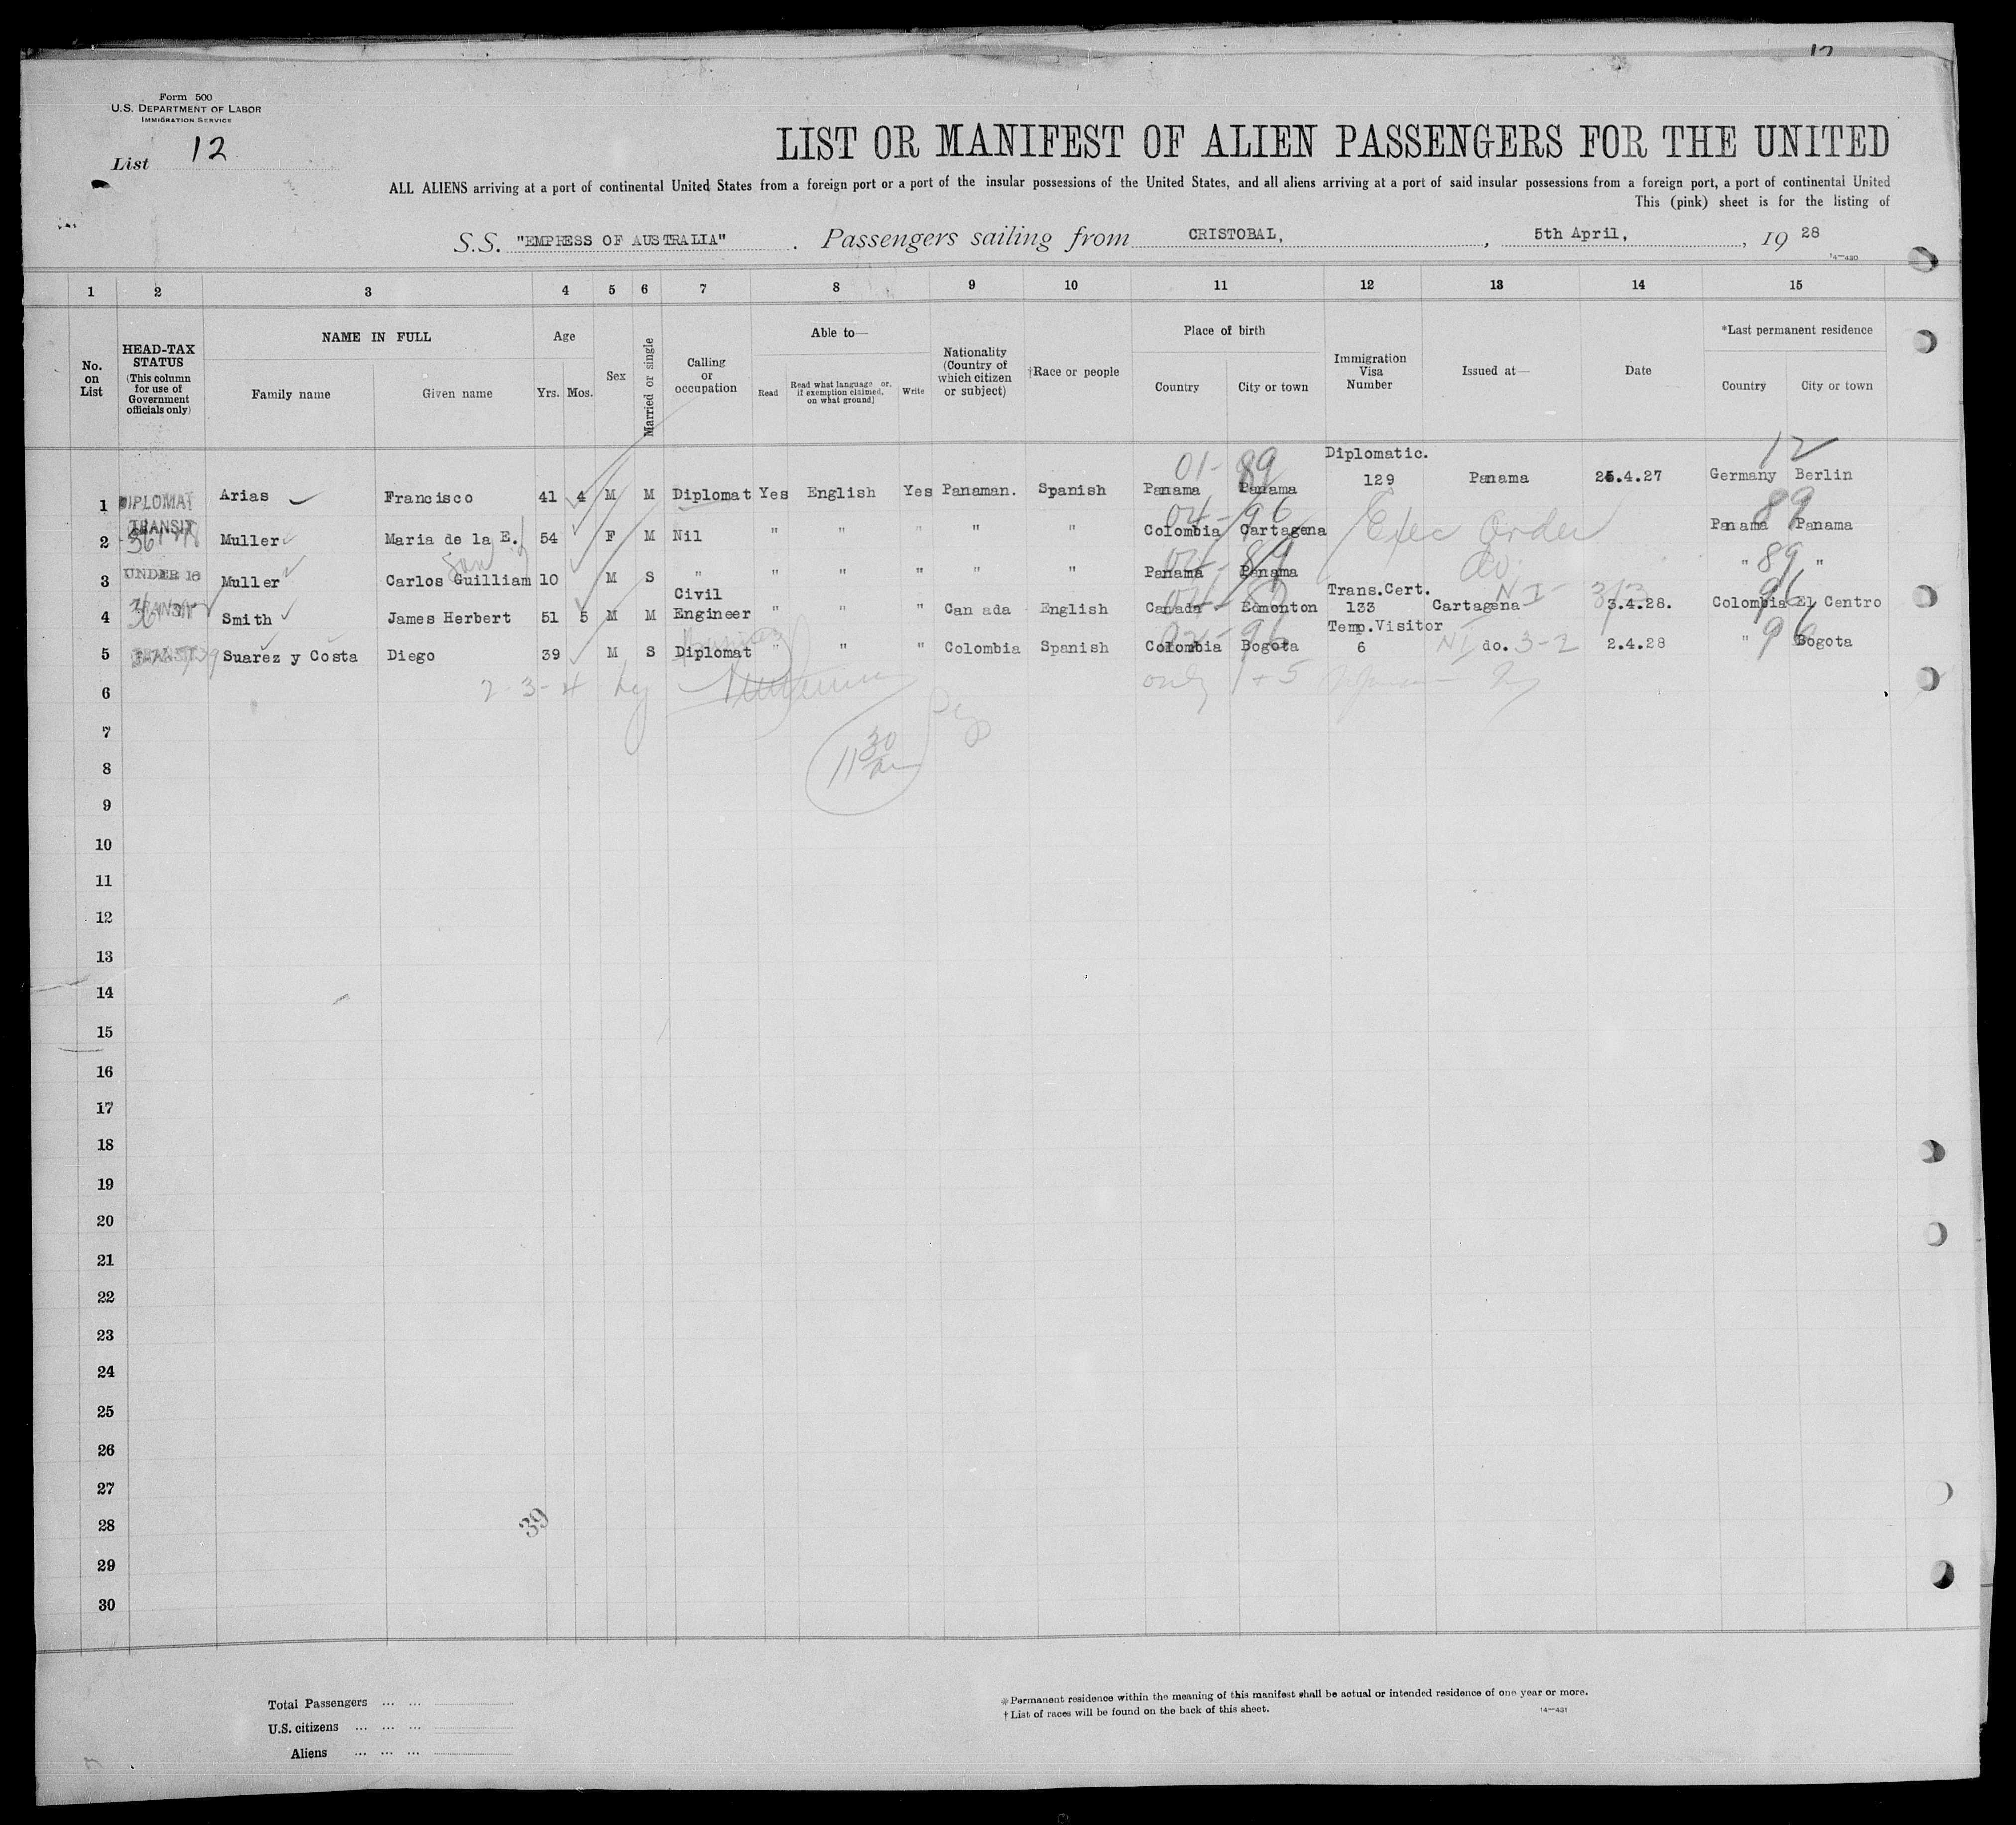 12
Form 500
U.S. DEPARTMENT OF LABOR
IMMIGRATION SERVICE
List 12
LIST OR MANIFEST OF ALIEN PASSENGERS FOR THE UNITED
ALL ALIENS arriving at a port of continental United States from a foreign port or a port of the insular possessions of the United States, and all aliens arriving at a port of said insular possessions from a foreign port, a port of continental United
This (pink) sheet is for the listing of
S.S. "EMPRESS OF AUSTRALIA" . Passengers sailing from CRISTOBAL, , 5th April, , 19 28
14—430
1 2 3 4 5 6 7 8 9 10 11 12 13 14 15
No. on List
HEAD-TAX STATUS (This column for use of Government officials only)
NAME IN FULL
Family name Given name
Age
Yrs. Mos.
Sex
Married or single
Calling or occupation
Able to—
Read Read what language or, if exemption claimed, on what ground] Write
Nationality (Country of which citizen or subject)
†Race or people
Place of birth
Country City or town
Immigration Visa Number
Issued at—
Date
*Last permanent residence
Country City or town
01- 89 Diplomatic. 12
1 DIPLOMAT Arias Francisco 41 4 M M Diplomat Yes English Yes Panaman. Spanish Panama Panama 129 Panama 25.4.27 Germany Berlin
TRANSIT 04-96 Exec Order 89
2 Muller Maria de la E. 54 F M Nil " " " " " Colombia Cartagena Panama Panama
Son 89 do. 89
3 UNDER 16 Muller Carlos Guilliam 10 M S " " " " " " Panama Panama " "
Civil Trans.Cert. NI- 3/3 96
4 TRANSIT Smith James Herbert 51 5 M M Engineer " " " Canada English Canada Edmonton 133 Cartagena 3.4.28. Colombia El Centro
96 Temp.Visitor 96
5 TRANSIT Suarez y Costa Diego 39 M S Diplomat " " " Colombia Spanish Colombia Bogota 6 NI do. 3-2 2.4.28 " Bogota
6 2-3-4 by only 1+5
7
11 30 am
8
9
10
11
12
13
14
15
16
17
18
19
20
21
22
23
24
25
26
27
28
39
29
30
Total Passengers ... ...
U.S. citizens ... ... ...
Aliens ... ... ...
*Permanent residence within the meaning of this manifest shall be actual or intended residence of one year or more.
†List of races will be found on the back of this sheet.
14—431